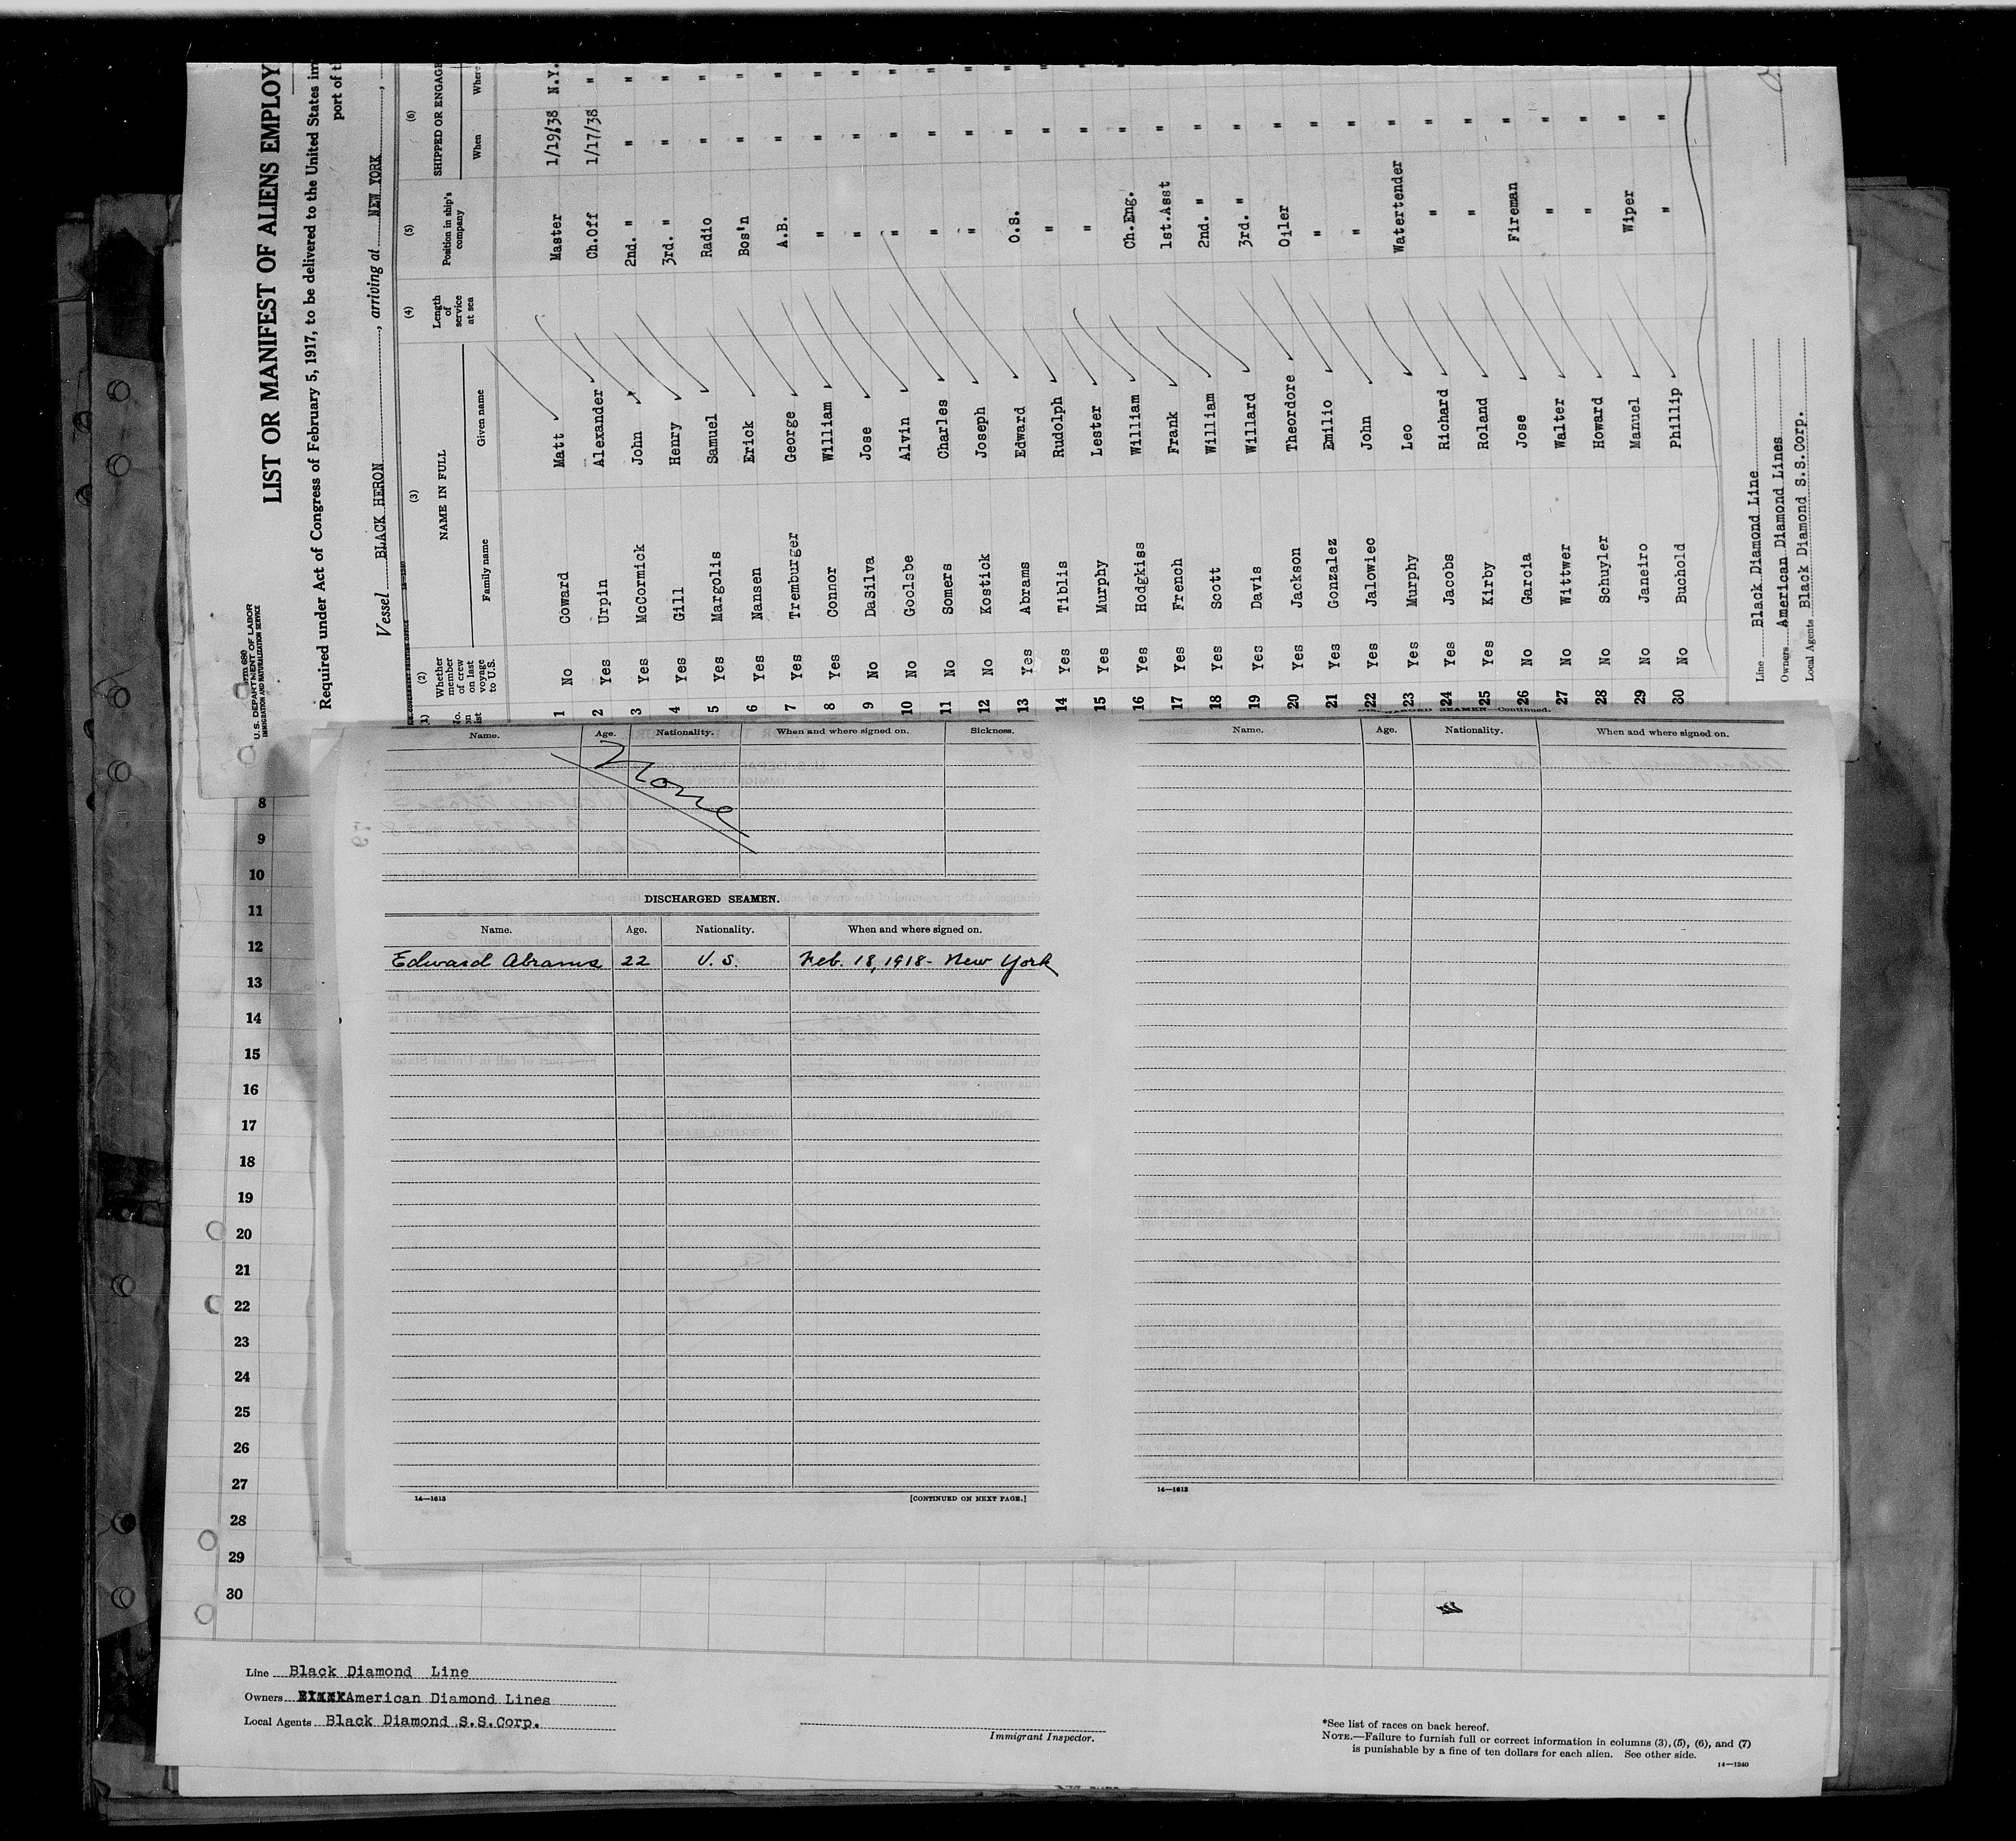 Form 680
U. S. DEPARTMENT OF LABOR
IMMIGRATION AND NATURALIZATION SERVICE
LIST OR MANIFEST OF ALIENS EMPLOY
Required under Act of Congress of February 5, 1917, to be delivered to the United States im
port of t
Vessel BLACK HERON, arriving at NEW YORK,
(1) (2) (3) (4) (5) (6)
No. on list
Whether member of crew on last voyage to U.S.
NAME IN FULL
Family name Given name
Length of service at sea
Position in ship's company
SHIPPED OR ENGAGE
When Where
1 No Coward Matt Master 1/19/38 N.Y.
2 Yes Urpin Alexander Ch.Off 1/17/38 "
3 Yes McCormick John 2nd. " " "
4 Yes Gill Henry 3rd. " " "
5 Yes Margolis Samuel Radio " "
6 Yes Nansen Erick Bos'n " "
7 Yes Tremburger George A.B. " "
8 Yes Connor William " " "
9 No DaSilva Jose " " "
10 No Goolsbe Alvin " " "
11 No Somers Charles " " "
12 No Kostick Joseph " " "
13 Yes Abrams Edward O.S. " "
14 Yes Tiblis Rudolph " " "
15 Yes Murphy Lester " " "
16 Yes Hodgkiss William Ch.Eng. " "
17 Yes French Frank 1st.Asst "
18 Yes Scott William 2nd. " "
19 Yes Davis Willard 3rd. " "
20 Yes Jackson Theordore Oiler "
21 Yes Gonzalez Emilio " "
22 Yes Jalowiec John " "
23 Yes Murphy Leo Watertender "
24 Yes Jacobs Richard " "
25 Yes Kirby Roland " "
26 No Garcia Jose Fireman "
27 No Wittwer Walter " "
28 No Schuyler Howard " "
29 No Janeiro Manuel Wiper "
30 No Buchold Phillip " "
Line Black Diamond Line
Owners American Diamond Lines
Local Agents Black Diamond S.S.Corp.
Name. Age. Nationality. When and where signed on. Sickness.
None
DISCHARGED SEAMEN.
Name. Age. Nationality. When and where signed on.
Edward Abrams 22 U.S. Feb. 18, 1918- New York
14—1613 [CONTINUED ON NEXT PAGE.]
DISCHARGED SEAMEN—Continued.
Name. Age. Nationality. When and where signed on.
14—1613
8
9
10
11
12
13
14
15
16
17
18
19
20
21
22
23
24
25
26
27
28
29
30
Line Black Diamond Line
Owners American Diamond Lines
Local Agents Black Diamond S.S.Corp.
Immigrant Inspector.
*See list of races on back hereof.
NOTE.—Failure to furnish full or correct information in columns (3), (5), (6), and (7)
is punishable by a fine of ten dollars for each alien. See other side.
14—1240